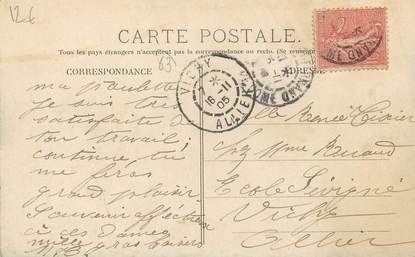 12€
CARTE POSTALE
Tous les pays étrangers n'acceptent pas la correspondance au recto. (Se renseigner
CORRESPONDANCE
63
ADRESSE
VICHY
16-11
05
ALLIER
ma paulette
Je suis très
satisfaite de
ton travail;
continue tu
me feras
grand plaisir
Souvenir affectueux
à ces Dames
mille gros baisers
Mlle Renée
chez Mme
Ecole Sévigné
Vichy
Allier